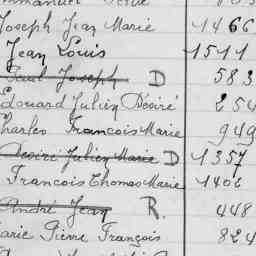 Joseph Jean Marie 1466
Jean Louis 1511
Paul Joseph D 583
Edouard Julien Désiré 254
Charles François Marie 949
Désiré Julien Marie D 1357
François Thomas Marie 1402
André Jean R. 448
Marie Pierre François 824